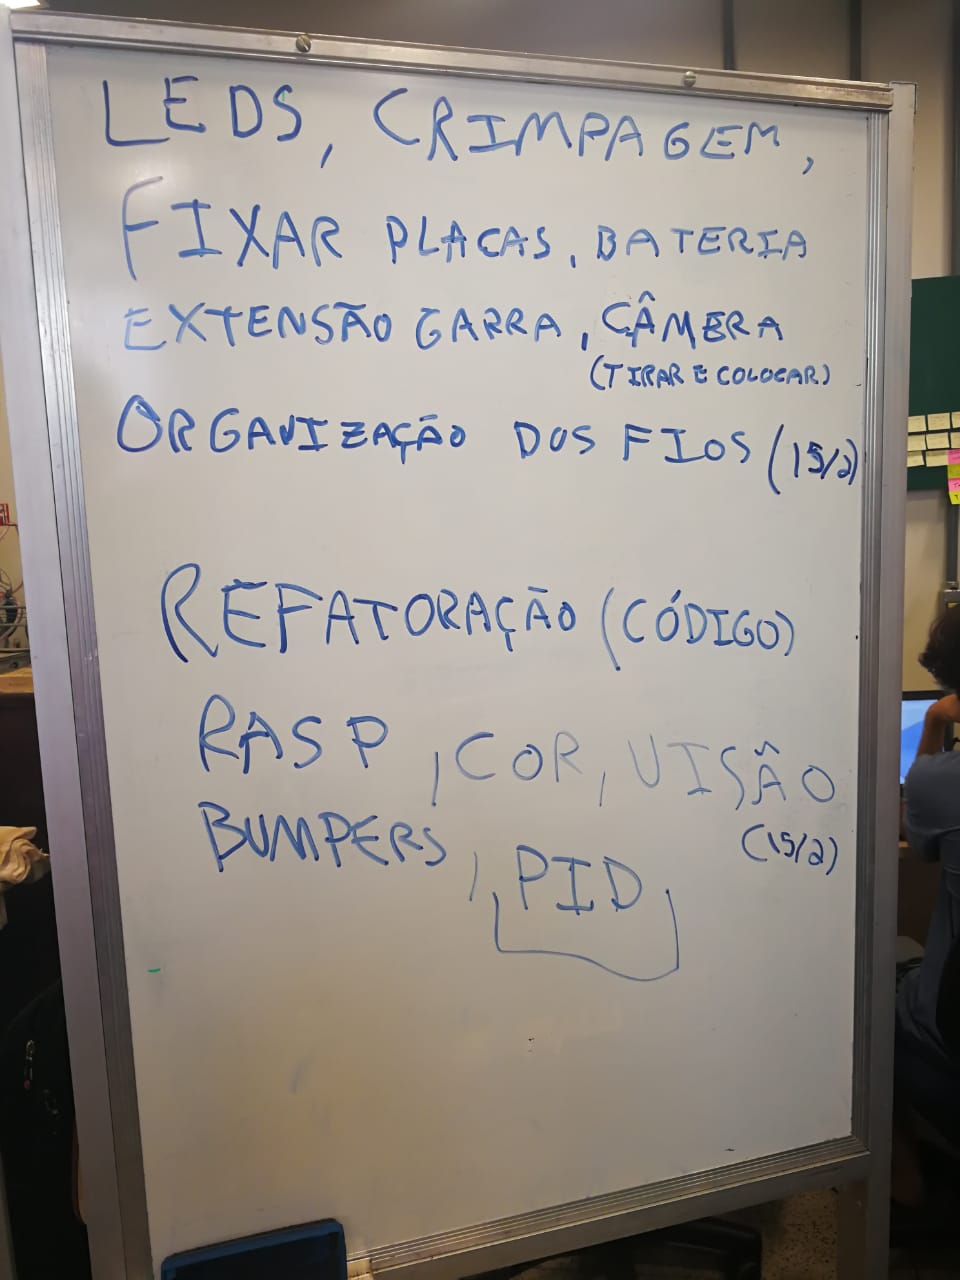 LEDS, CRIMPAGEM,
FIXAR PLACAS, BATERIA
EXTENSÃO GARRA, CÂMERA
(TIRAR E COLOCAR)
ORGANIZAÇÃO DOS FIOS (15/2)
REFATORAÇÃO (CÓDIGO)
RASP, COR, VISÃO
BUMPERS, PID (15/2)